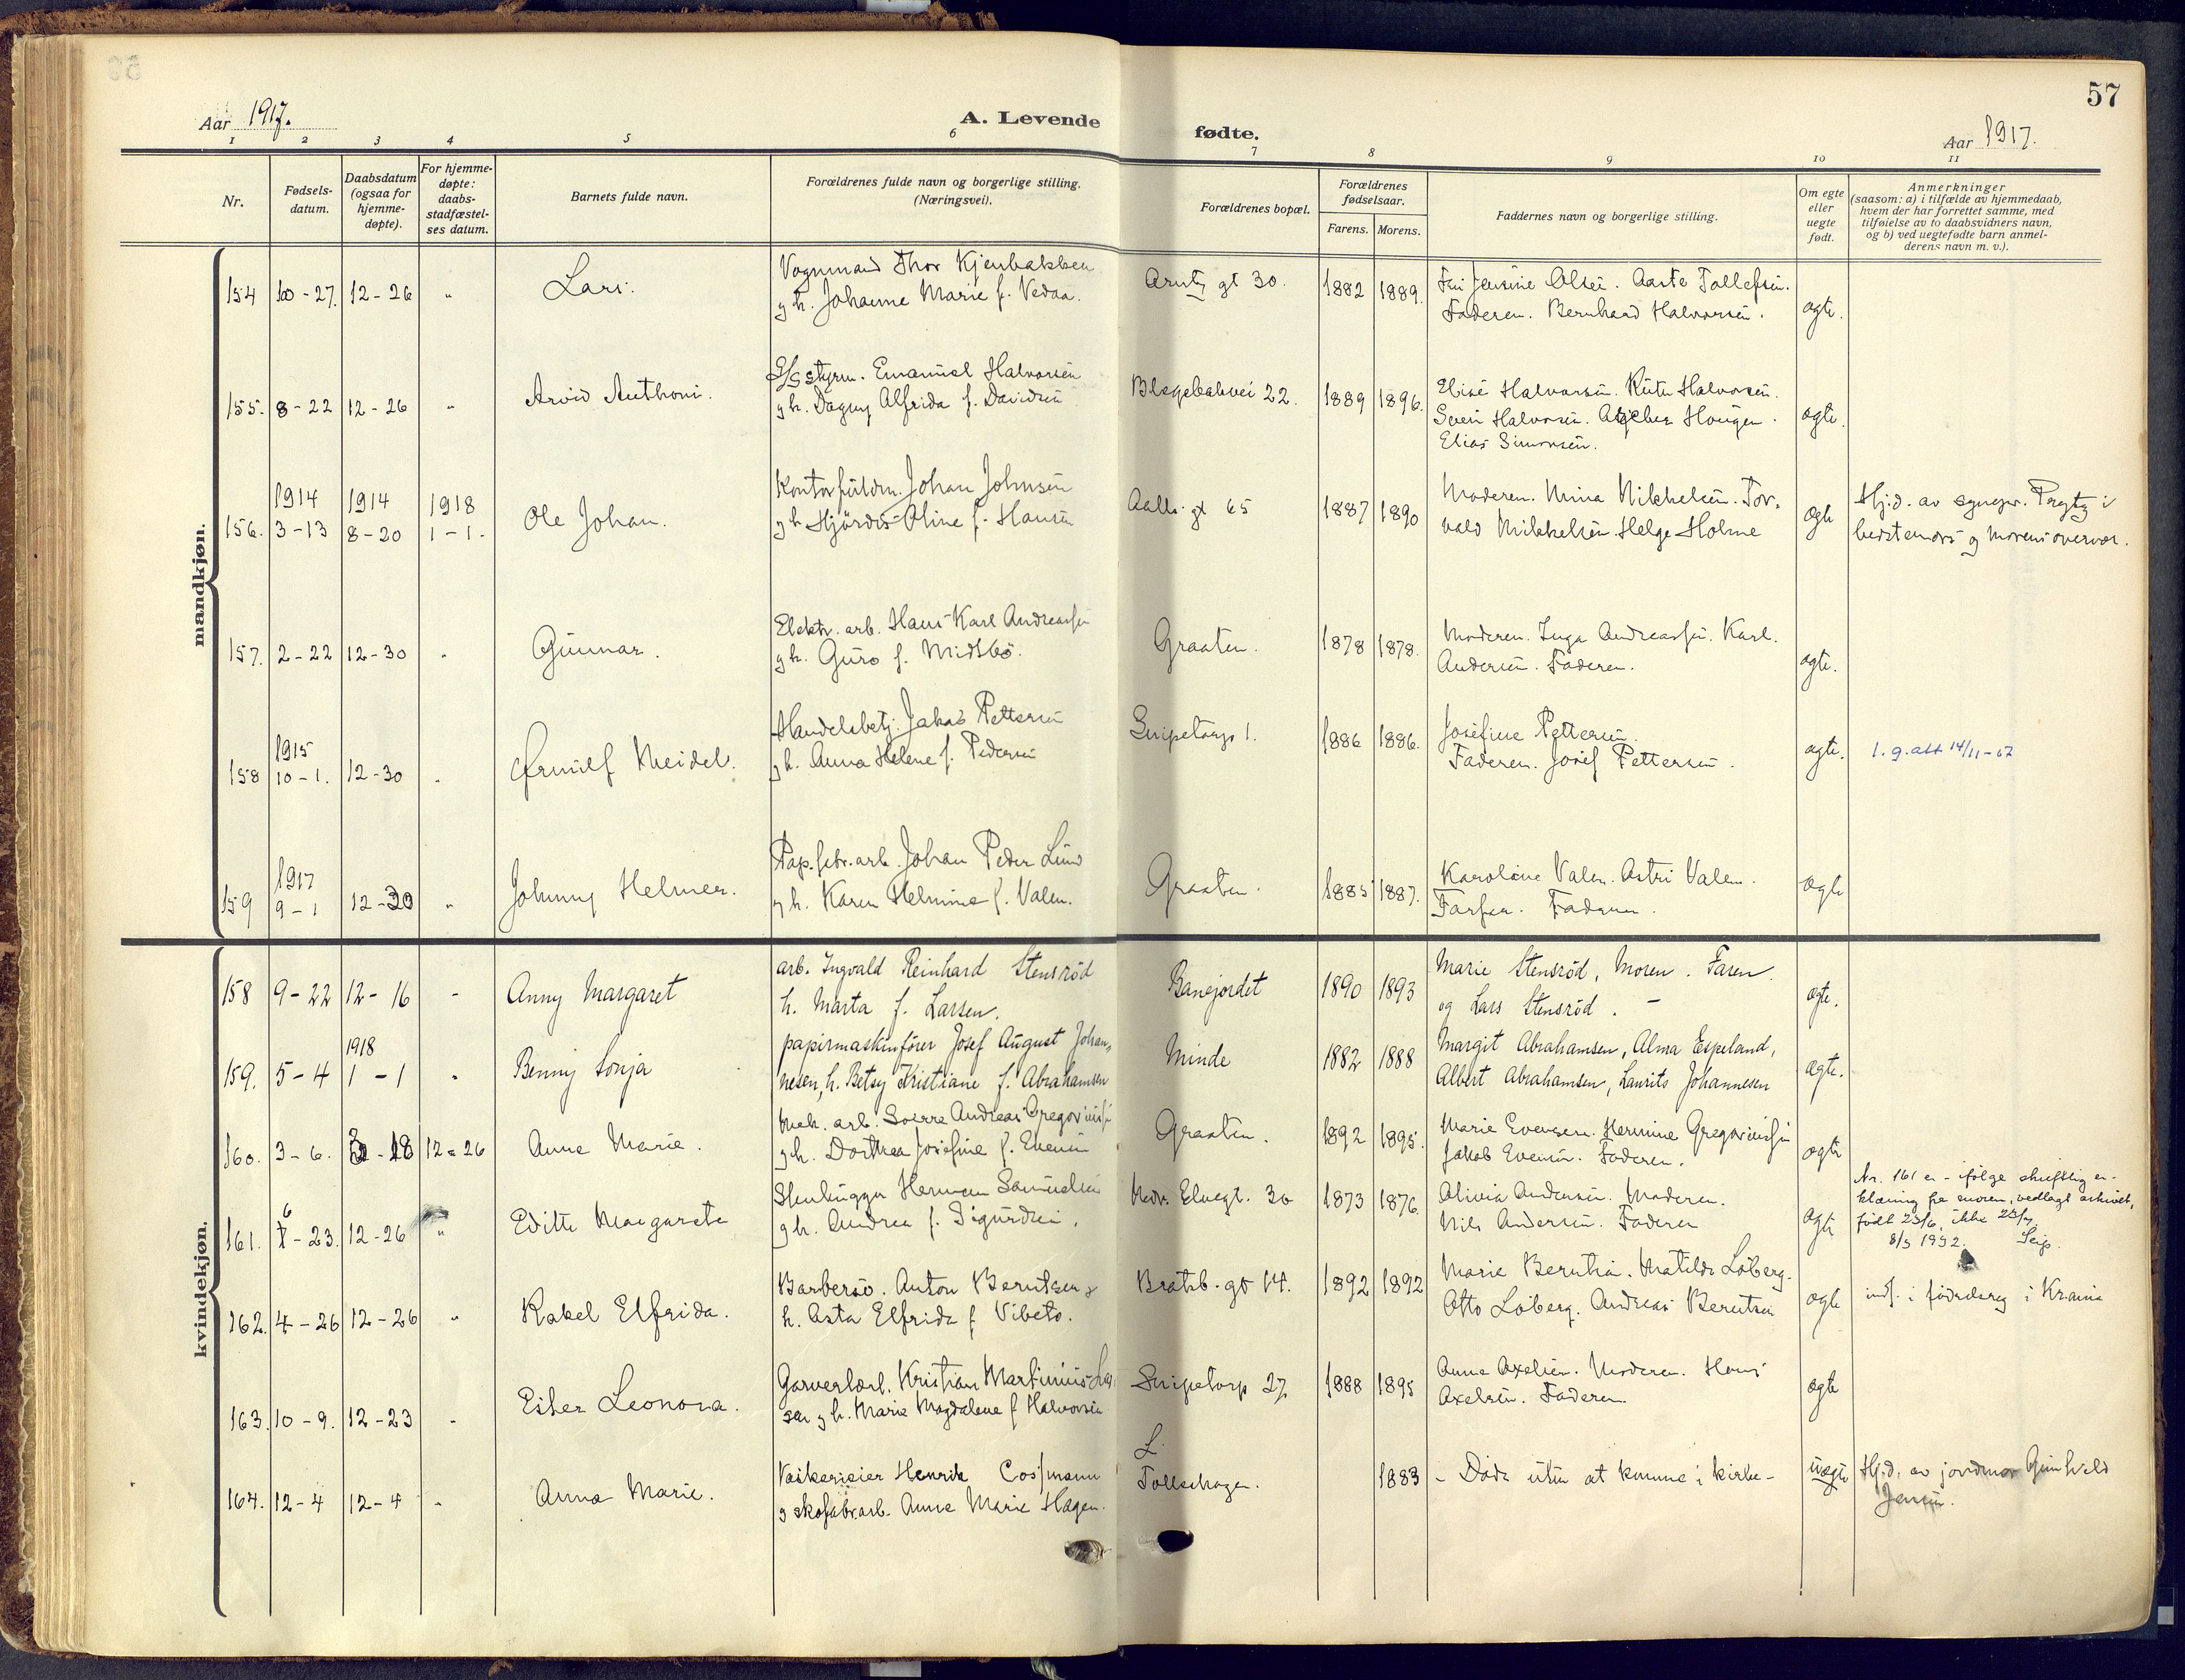 57
Aar 1917.
A. Levende
fødte.
Aar 1917.
1 2 3 4 5 6 7 8 9 10 11
Nr.
Fødsels-
datum.
Daabsdatum
(ogsaa for
hjemme-
døpte).
For hjemme-
døpte:
daabs-
stadfæstel-
ses datum.
Barnets fulde navn.
Forældrenes fulde navn og borgerlige stilling.
(Næringsvei).
Forældrenes bopæl.
Forældrenes
fødselsaar.
Farens. Morens.
Faddernes navn og borgerlige stilling.
Om egte
eller
uegte
født.
Anmerkninger
(saasom: a) i tilfælde av hjemmedaab,
hvem der har forrettet samme, med
tilføielse av to daabsvidners navn,
og b) ved uegtefødte barn anmel-
derens navn m. v.).
mandkjøn.
Vognmand Thor Kjenbakken
154 10-27. 12-26 " Lars. g h. Johanne Marie f. Vedaa. Arntz gt 30. 1882 1889.
Jensine Olsen. Aaste Tollefsen.
Faderen. Bernhard Halvorsen. ægte.
S/S styrm. Emanuel Halvorsen
155. 8-22 12-26 " Arvid Anthoni. g h. Dagny Alfrida f. Davidsen 22. 1889 1896.
Elise Halvorsen. Rut Halvorsen.
Halvorsen. Haugen.
Elias Simonsen. ægte.
1914 1914 1918
156. 3-13 8-20 1-1. Ole Johan.
Johan Johnsen
g h Hjördis Oline f. Hansen
Aalls. gt 65 1887 1890
Moderen. Mina Mikkelsen. Tor-
vald Mikkelsen. Helge Holme ægte
Hj.d. av sogepr. i
bedstemors g morens overvær.
157. 2-22 12-30 " Gunnar.
Elektr. arb. Hans Karl Andreassen
g h. Guro f. Midtbö.
Graaten. 1878 1878.
Moderen. Inga Andreassen. Karl.
Andersen. Faderen. ægte.
1915
158 10-1. 12-30 " Ørnulf Meidel.
Handelsbetj. Jakob Pettersen
g h. Anna Helene f. Pedersen
Snipetorp 1. 1886 1886.
Josefine Pettersen.
Faderen. Josef Pettersen. ægte. l. g. att 14/11-67
1917
159 9-1 12-30 " Johnny Helmer.
Pap.fabr.arb. Johan Peder Lund
g h. Karen Helmine f. Valen.
Graaten. 1885 1887.
Karoline Valen. Astri Valen.
Farfar. Faderen. ægte
kvindekjøn.
158 9-22 12-16 " Anny Margaret
arb. Ingvald Reinhard Stensröd
h. Marta f. Larsen.
Banejordet 1890 1893
Marie Stensröd, Moren. Faren.
og Lars Stensröd. - ægte.
1918
159. 5-4 1-1 " Benny Sonja
papirmaskinförer Josef August Johan-
nesen, h. Betsy Kristiane f. Abrahamsen
Minde 1882 1888
Margit Abrahamsen, Alma Espeland,
Albert Abrahamsen, Laurits Johannesen ægte.
160. 3-6. 3-18 12-26 Anne Marie.
Mek. arb. Sverre Andreas Gregoriussen
g h. Dorthea Josefine f. Evensen
Graaten. 1892 1895.
Marie Evensen. Hermine Gregoriussen
Jakob Evensen. Faderen. ægte
6
161. 7-23. 12-26 " Edith Margarete
Stenhugger Herman Samuelsen
g h. Andrea f. Sigurdsen.
Nedr. Elvegt. 30 1873 1876.
Olivia Andersen. Moderen.
Nils Andersen. Faderen ægte
Nr. 161 er - ifølge skriftlig er-
klæring fra moren, vedlagt arkivet,
født 23/6, ikke 23/7.
8/3 1932. Seip.
162. 4-26 12-26 " Rakel Elfrida.
Barbersv. Anton Berntsen g
h. Asta Elfrida f Vibeto.
Bratsb. gt 14. 1892 1892
Marie Berntsen. Matilde Löberg.
Otto Löberg. Andreas Berntsen ægte
indf. i födselsreg i Kr.ania
163. 10-9. 12-23 " Ester Leonora.
Garveriarb. Kristian Martinius Lar-
sen g h. Marie Magdalene f Halvorsen
Snipetorp 27. 1888 1895
Anna Axelsen. Moderen. Hans
Axelsen. Faderen. ægte
164. 12-4 12-4 " Anna Marie.
Vaskerieier Henrik Cossmann
g skofabr.arb. Anne Marie Hagen.
L.
Follaug. 1883
- Döde uten at komme i kirke - uægte
Hj.d. av jordmor Gunhild
Jensen.